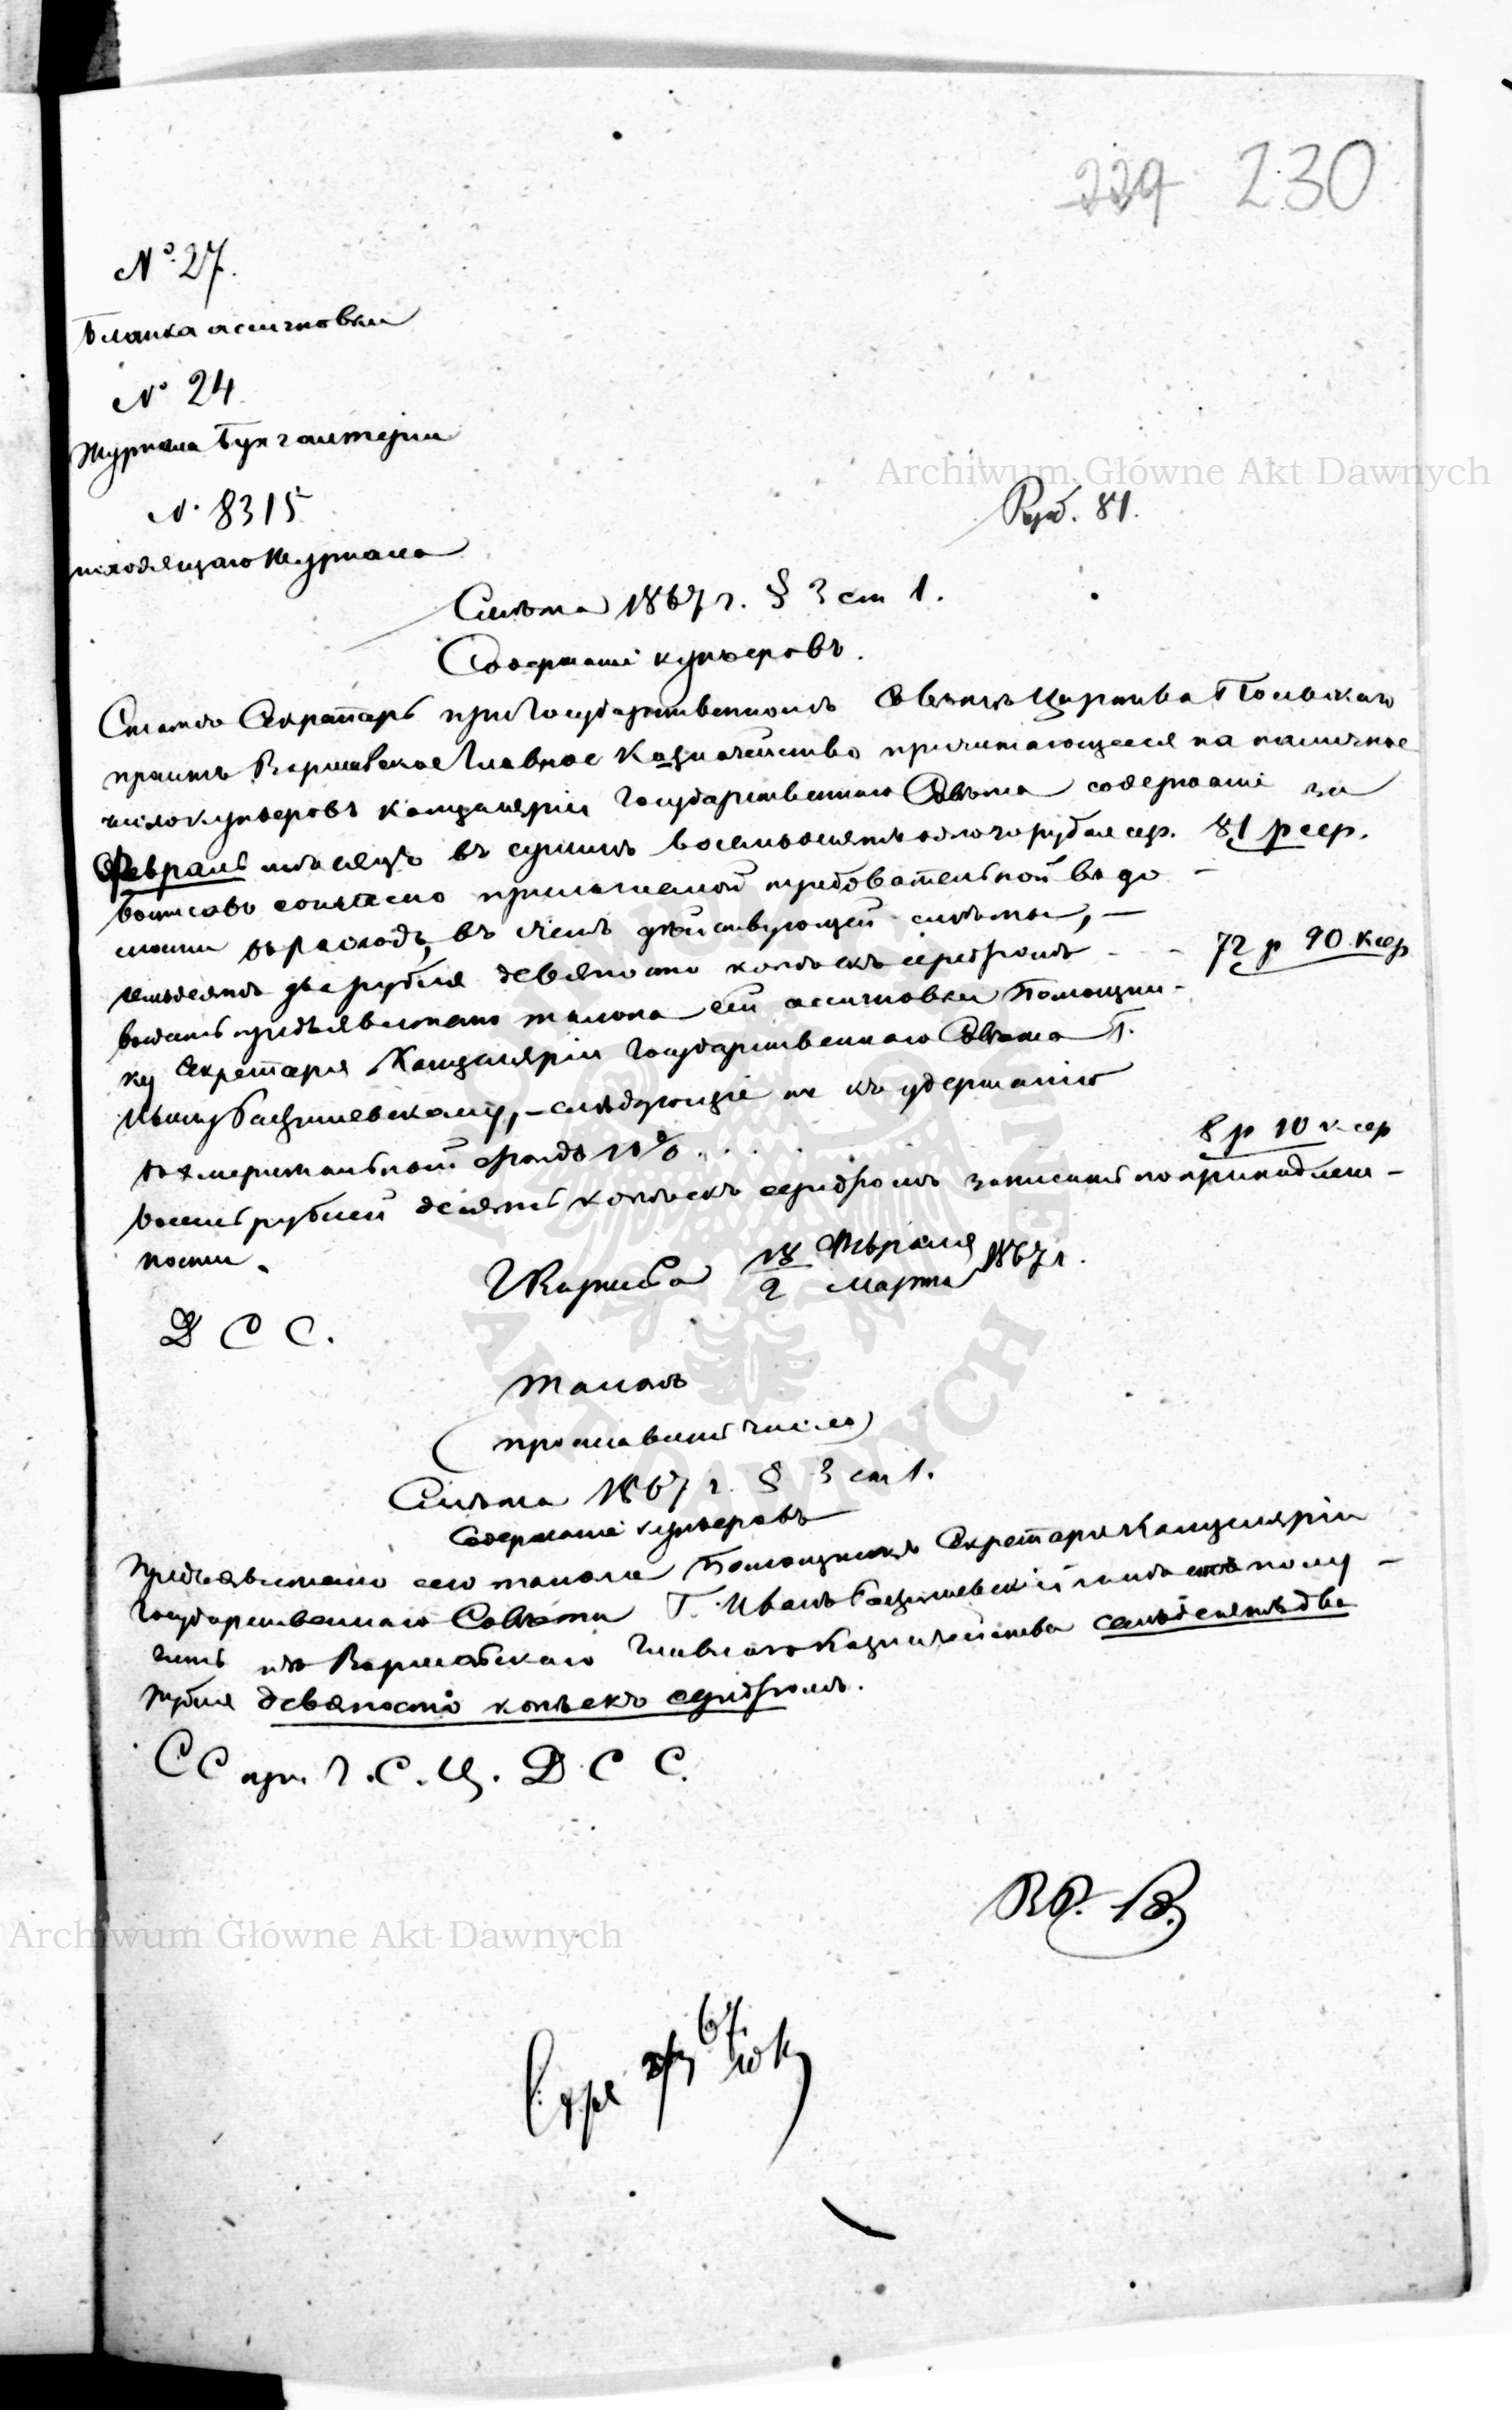 229 230
№ 27.
бланка ассигновки
№ 24
Журнала Бухгалтеріи
№ 8315
исходящаго Журнала
Archiwum Główne Akt Dawnych
Руб. 81.
Смѣта 1867 г. § 3 ст 1.
Содержаніе курьеровъ.
Статсъ Секретарь при Государственномъ Совѣтѣ Царства Польскаго
проситъ Варшавское Главное Казначейство причитающееся на наличное
число курьеровъ Канцеляріи Государственнаго Совѣта содержаніе за
Февраль мѣсяцъ въ суммѣ восемьдесятъ одного рубля сер. 81 р сер.
выписавъ согласно прилагаемой требовательной вѣдо-
мости въ расходъ, въ счетъ дѣйствующей смѣты, —
семьдесятъ два рубля девяносто копѣекъ серебромъ - - 72 р 90 к сер
выдать предъявителю талона сей ассигновки Помощни-
ку Секретаря Канцеляріи Государственнаго Совѣта Г.
Ивану, — слѣдующіе же къ удержанію
въ эмеритальный фондъ 10% . . . . 8 р 10 к сер
восемь рублей десять копѣекъ серебромъ записать по принадлеж-
ности.
Варшава 18 Февраля / 2 Марта 1867 г.
Д С С.
Талонъ
(проставить число)
Смѣта 1867 г. § 3 ст 1.
Содержаніе курьеровъ
Предъявитель сего талона Помощникъ Секретаря Канцеляріи
Государственнаго Совѣта Г. Иванъ полу-
чить изъ Варшавскаго Главнаго Казначейства семьдесятъ два
рубля девяносто копѣекъ серебромъ.
С С при Г. С. Ц. Д. С С.
Archiwum Główne Akt Dawnych
67